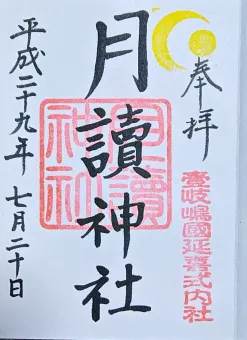 奉拝
壹岐嶋國延喜式内社
月讀神社
月讀神社
平成二十九年 七月二十日